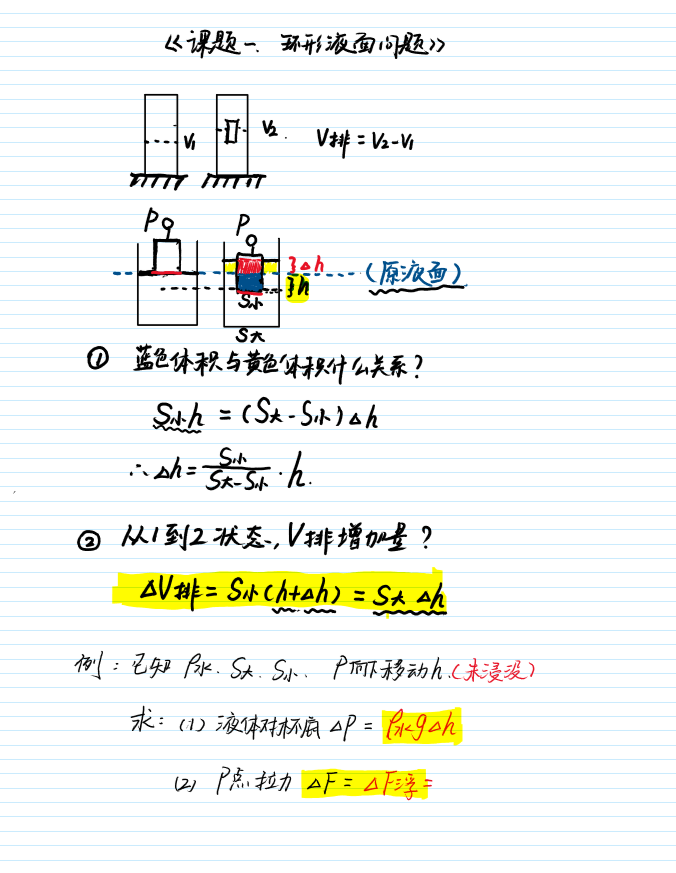 《课题一、环形液面问题》
V₁ V₂ V排=V₂-V₁
P P
}Δh (原液面)
}h
S小
S大
① 蓝色体积与黄色体积什么关系?
S小h = (S大-S小)Δh
∴Δh=S小/(S大-S小)·h.
② 从1到2状态,V排增加量?
ΔV排=S小(h+Δh)=S大Δh
例:已知 ρ水、S大、S小、P向下移动h.(未浸没)
求:(1)液体对杯底ΔP=ρ水gΔh
(2) P点拉力 ΔF=ΔF浮=